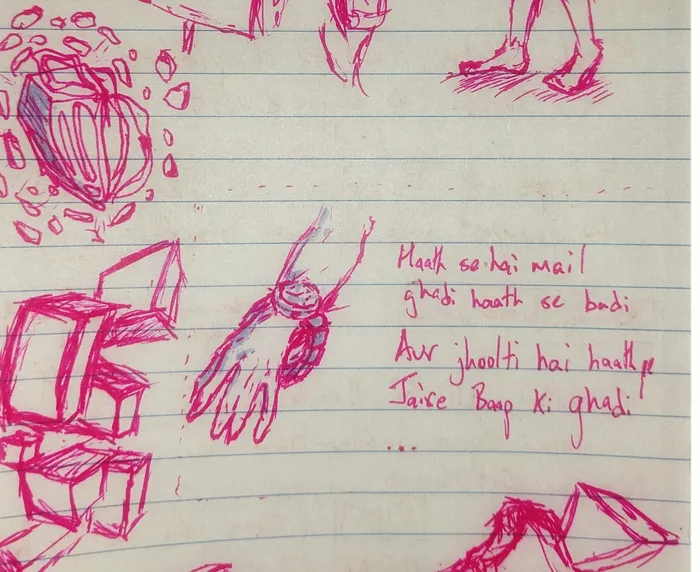 Haath se hai mail
ghadi haath se badi
Aur jhoolti hai haath pe
Jaise Baap Ki ghadi
...